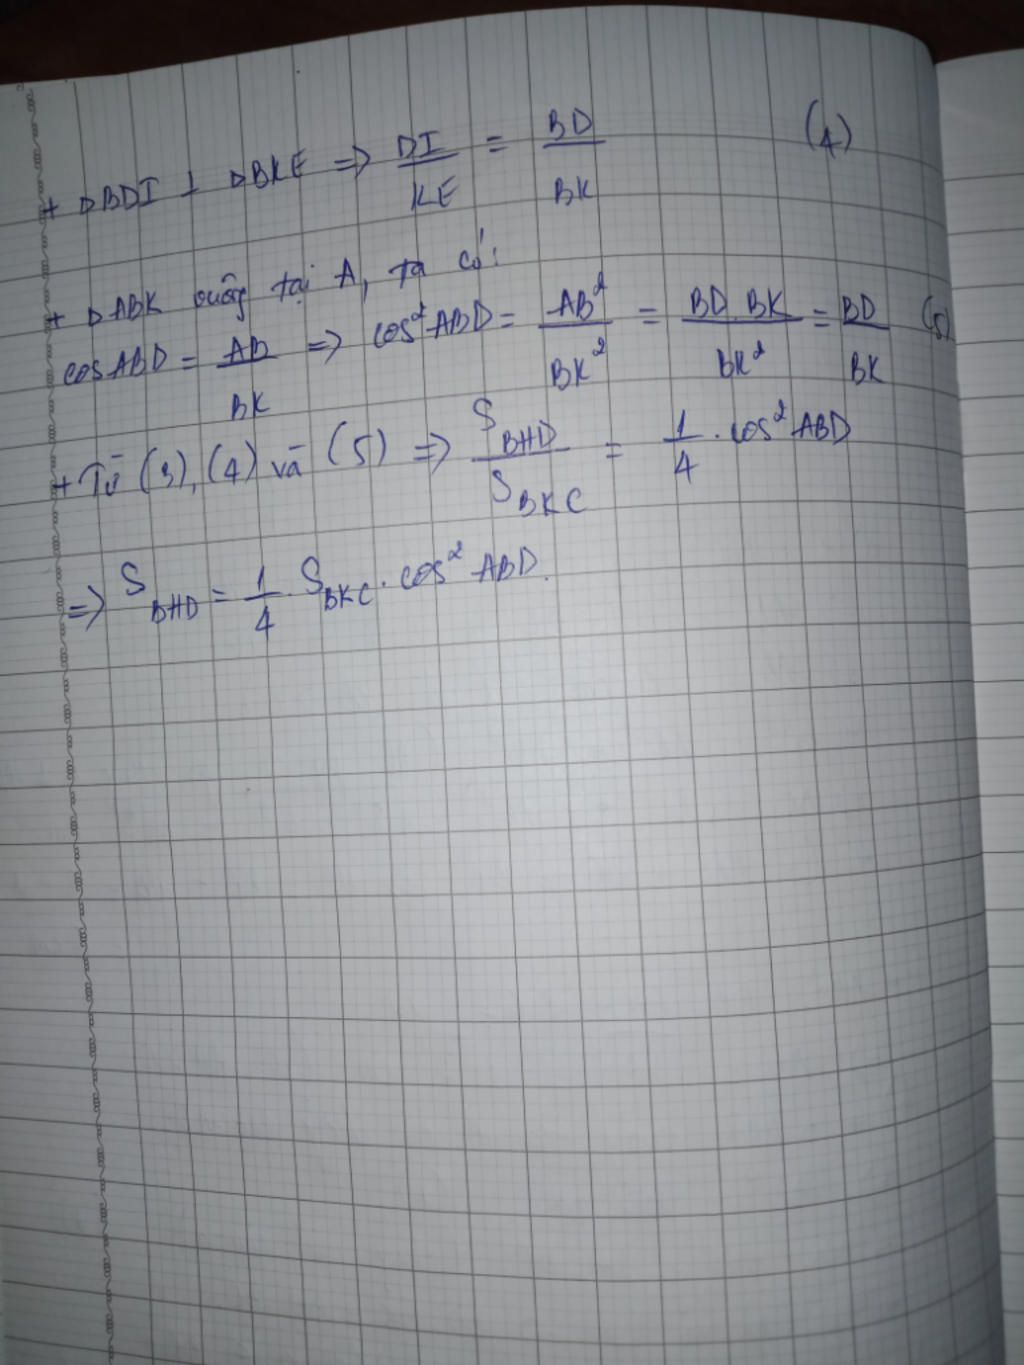 + ΔBDI ⊥ ΔBKE => DI/KE = BD/BK (4)
+ ΔABK vuông tại A, ta có:
cosABD = AB/BK => cos²ABD = AB²/BK² = BD.BK/BK² = BD/BK (5)
+ Từ (3), (4) và (5) => S_BHD/S_BKC = 1/4 . cos²ABD
=> S_BHD = 1/4 . S_BKC . cos² ABD.